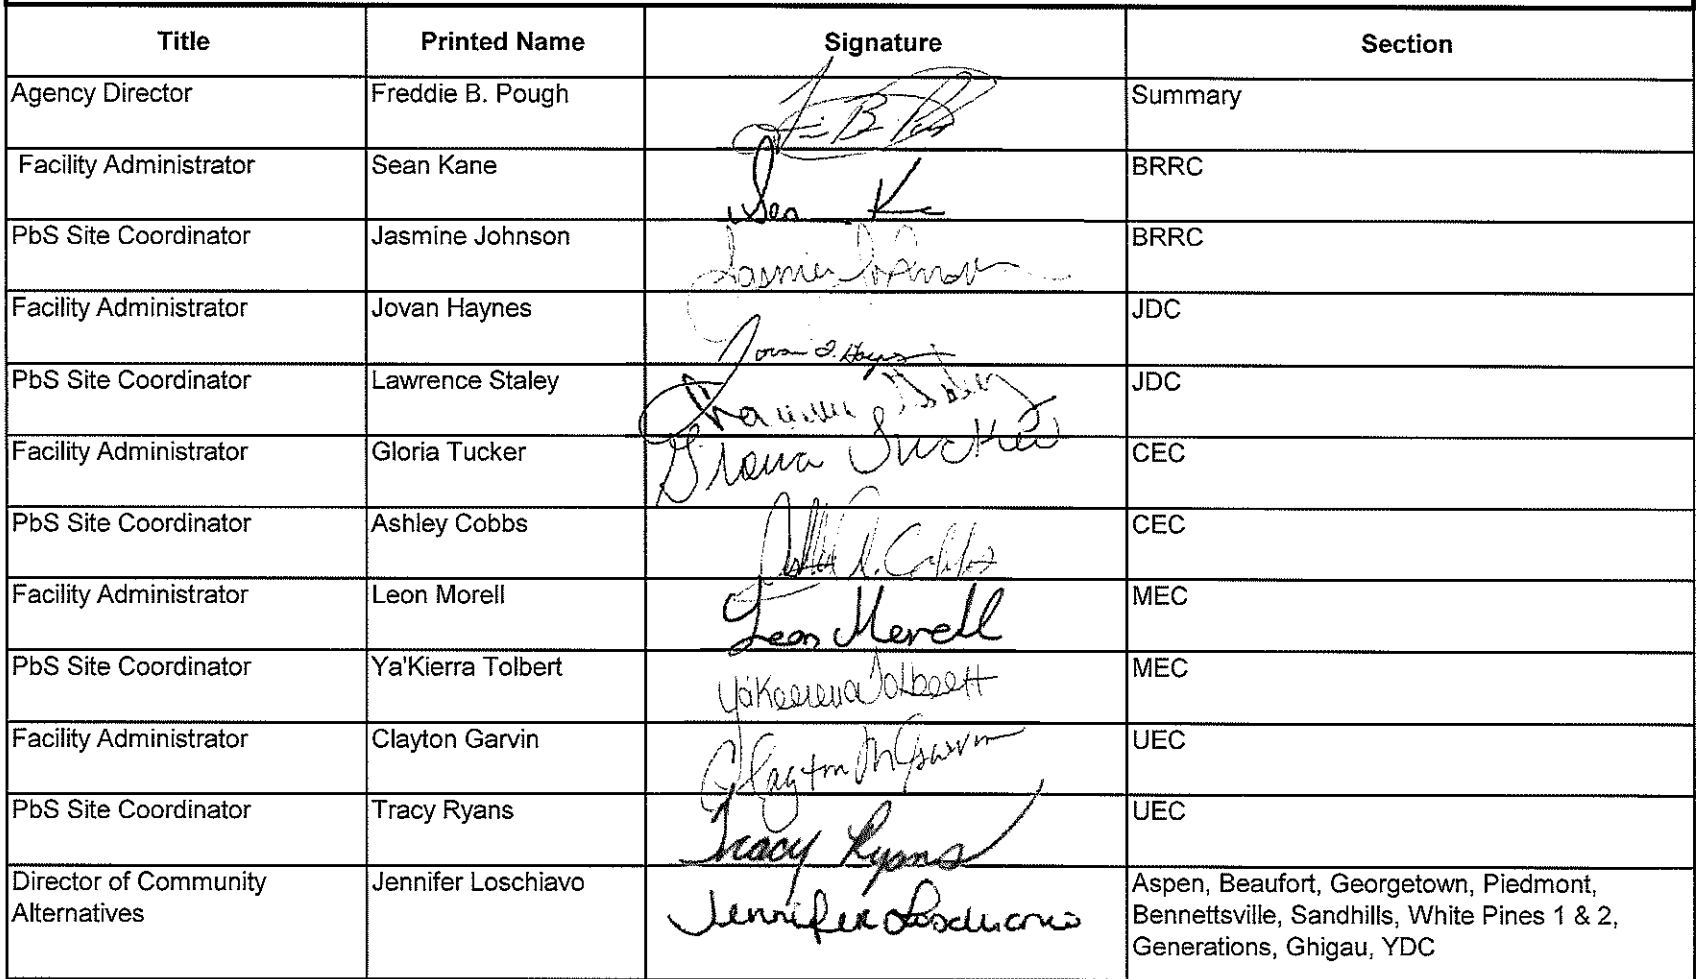 Title Printed Name Signature Section
Agency Director Freddie B. Pough Summary
Facility Administrator Sean Kane Sean K BRRC
PbS Site Coordinator Jasmine Johnson Jasmine Johnson BRRC
Facility Administrator Jovan Haynes Jovan Haynes JDC
PbS Site Coordinator Lawrence Staley JDC
Facility Administrator Gloria Tucker Gloria Tucker CEC
PbS Site Coordinator Ashley Cobbs Cobbs CEC
Facility Administrator Leon Morell Leon Morell MEC
PbS Site Coordinator Ya'Kierra Tolbert Ya'Kierra Tolbert MEC
Facility Administrator Clayton Garvin Clayton M Garvin UEC
PbS Site Coordinator Tracy Ryans Tracy Ryans UEC
Director of Community Jennifer Loschiavo Jennifer Loschiavo Aspen, Beaufort, Georgetown, Piedmont,
Alternatives Bennettsville, Sandhills, White Pines 1 & 2,
Generations, Ghigau, YDC